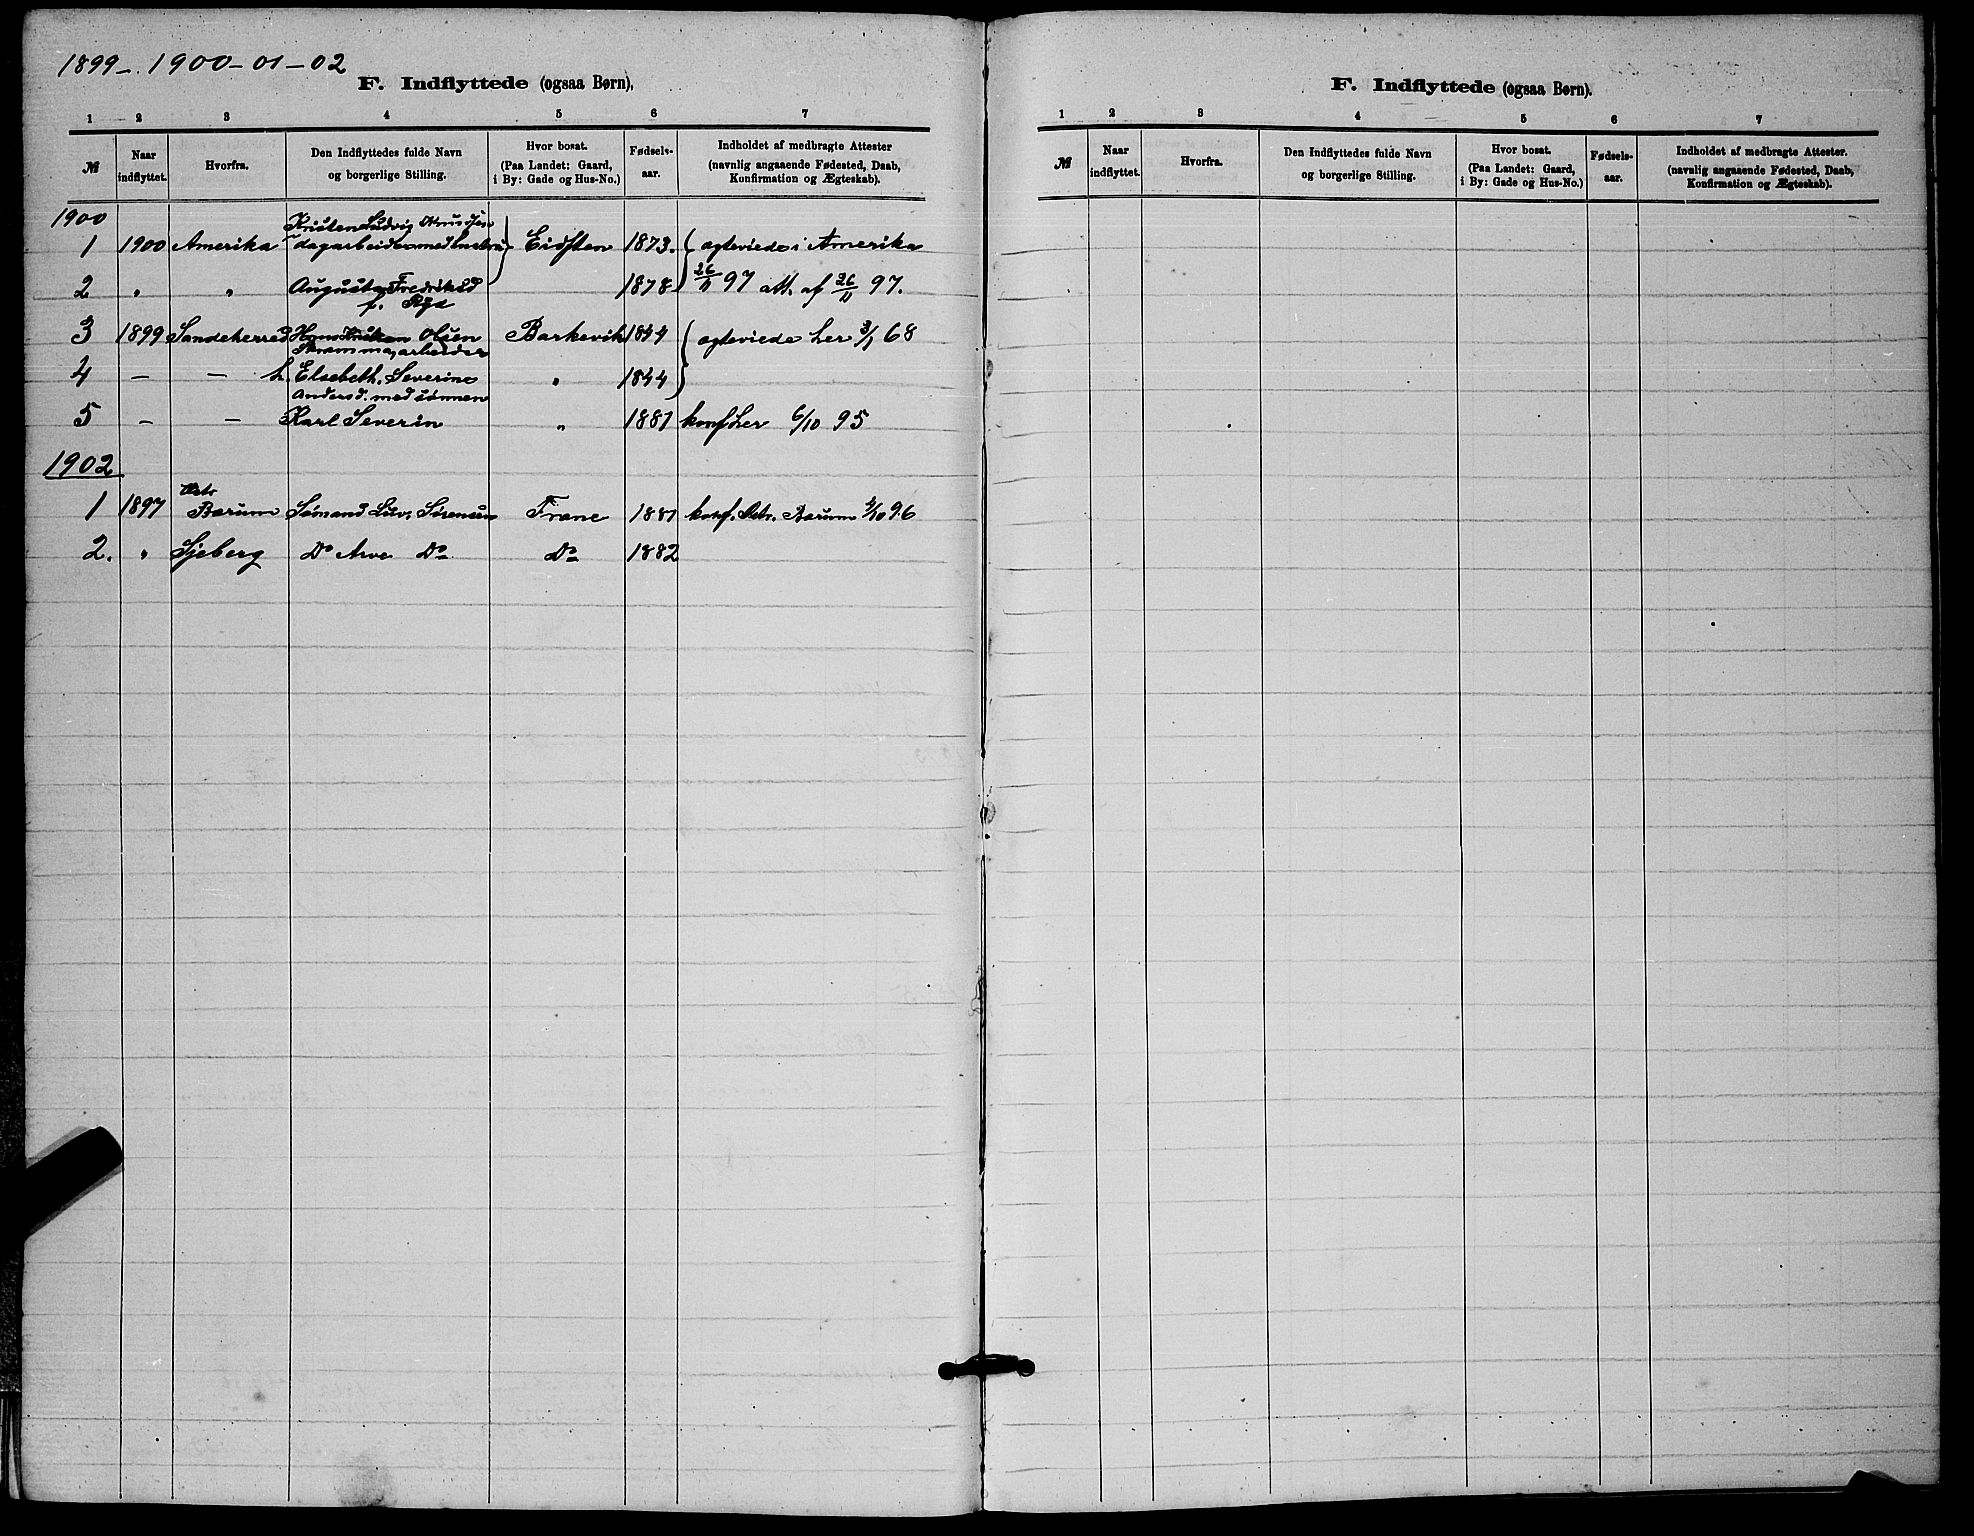 1899-1900-01-02
F. Indflyttede (ogsaa Børn),
1 2 3 4 5 6 7
№ Naar indflyttet. Hvorfra. Den Indflyttedes fulde Navn og borgerlige Stilling. Hvor bosat. (Paa Landet: Gaard, i By: Gade og Hus-No.) Fødsels-aar. Indholdet af medbragte Attester (navnlig angaaende Fødested, Daab, Konfirmation og Ægteskab).
1900
Kristen Ludvig
1 1900 Amerika dagarbeider med hustru Eidsten 1873. ægteviede i Amerika
2 " " Augusta Fredriksd 1878 26/11 97 att. af 26/11 97.
f. Ryd
3 1899 Sandeherred Hans Olsen Barkevik 1844 ægteviede her 3/1 68
arbeider
4 — — h. Elsebeth Severine " 1844
Andersd. med sønnen
5 — — Karl Severin " 1881 konf her 6/10 95
1902
1 1897 Barum Sømand Ludv. Sørensen Trane 1881 konf. Barum 4/10 96
2. " Sjeberg Do Arve Do Do 1882
F. Indflyttede (ogsaa Børn).
1 2 3 4 5 6 7
№ Naar indflyttet. Hvorfra. Den Indflyttedes fulde Navn og borgerlige Stilling. Hvor bosat. (Paa Landet: Gaard, i By: Gade og Hus-No.) Fødsels-aar. Indholdet af medbragte Attester. (navnlig angaaende Fødested, Daab, Konfirmation og Ægteskab).